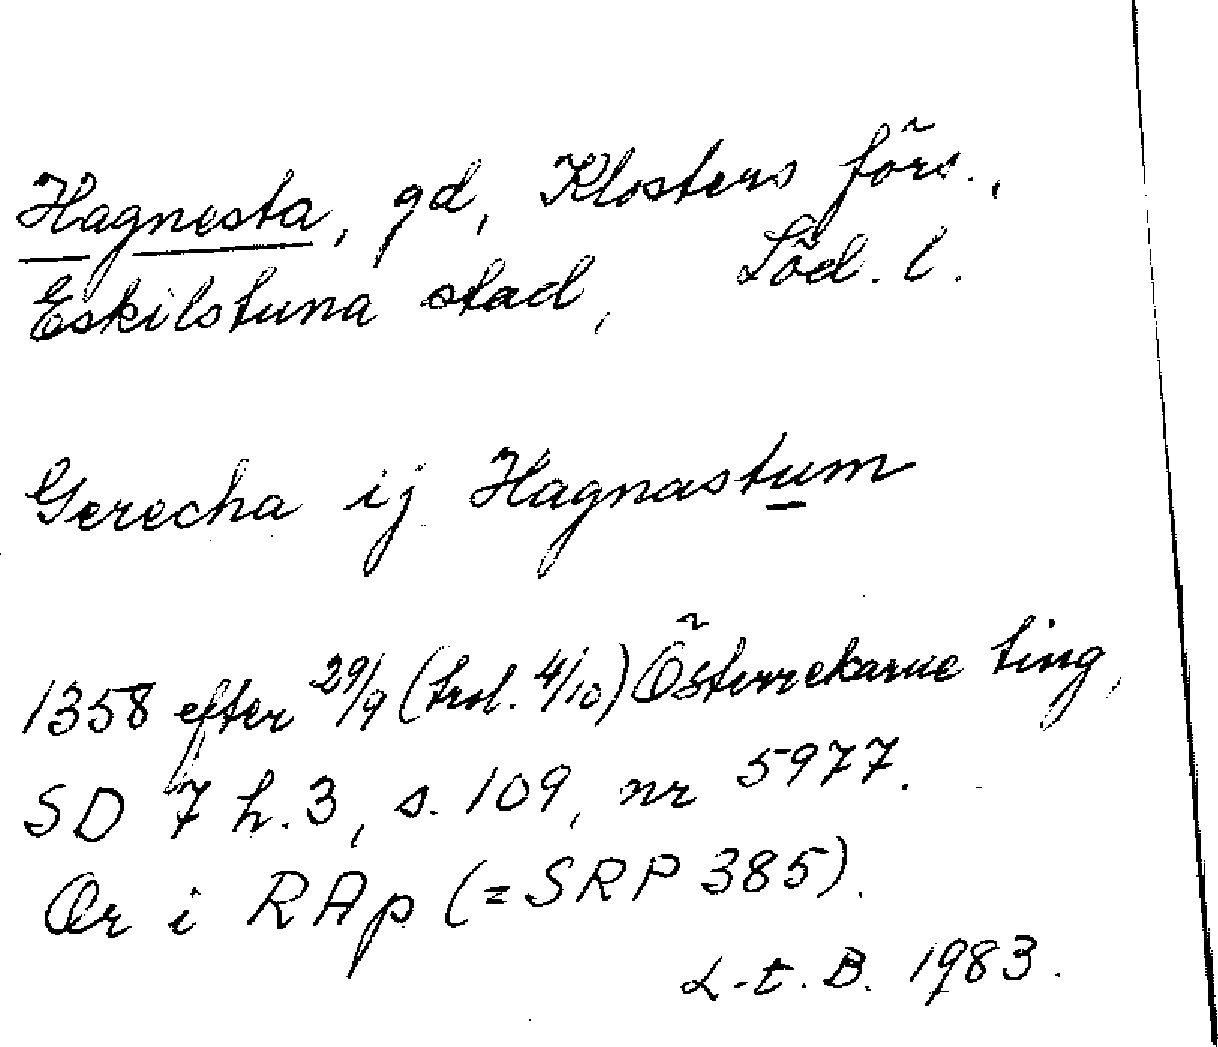 Hagnesta, gd, Klosters förs.,
Eskilstuna stad, Söd. l.
Gerecha ij Hagnastum
1358 efter 29/9 (trol. 4/10) Österrekarne ting,
SD 7 h. 3, s. 109, nr 5977.
Or i RAp (= SRP 385).
L-t. B. 1983.